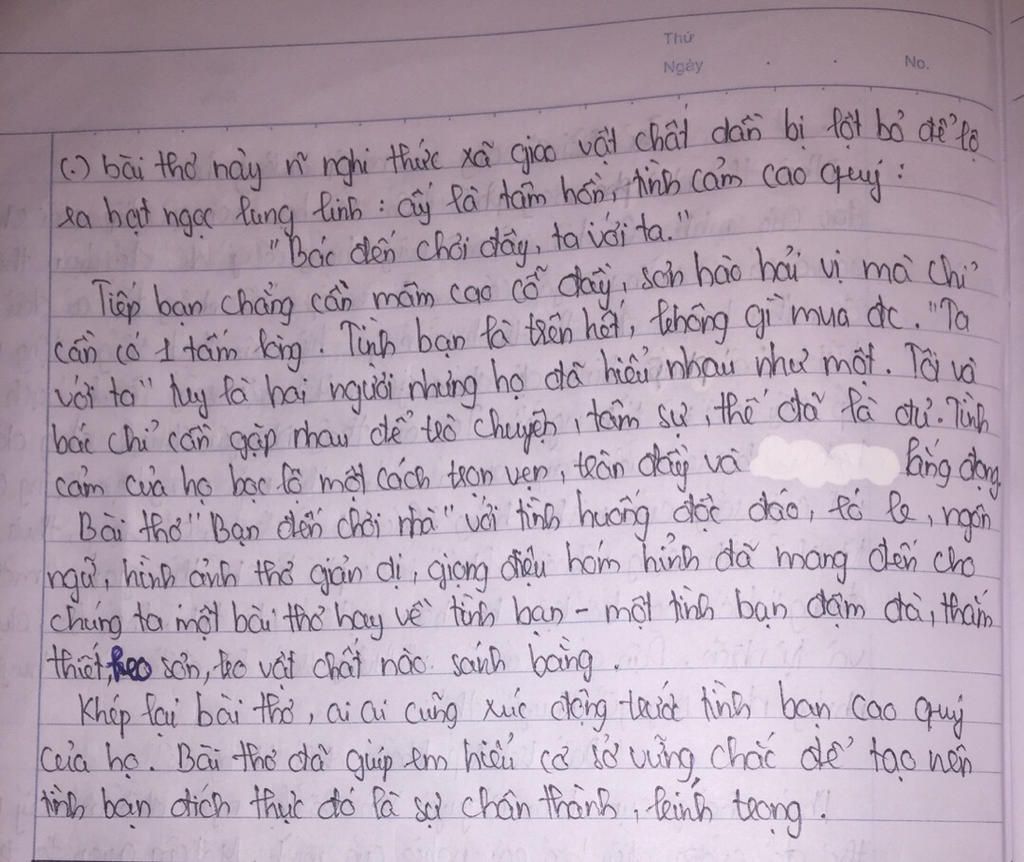 Thứ
Ngày . . No.
(.) bài thơ này n~ nghi thức xã giao vật chất dần bị lột bỏ để lộ
ra hạt ngọc lung linh : ấy là tâm hồn, tình cảm cao quý :
"Bác đến chơi đây, ta với ta."
Tiếp bạn chẳng cần mâm cao cỗ đầy, sơn hào hải vị mà chỉ
cần có 1 tấm lòng. Tình bạn là trên hết, không gì mua đc. "Ta
với ta" tuy là hai người nhưng họ đã hiểu nhau như một. Tôi và
bác chỉ cần gặp nhau để trò chuyện, tâm sự, thế đã là đủ. Tình
cảm của họ bộc lộ một cách trọn vẹn, tràn đầy và lắng đọng
Bài thơ "Bạn đến chơi nhà" với tình huống độc đáo, éo le, ngôn
ngữ, hình ảnh thơ giản dị, giọng điệu hóm hỉnh đã mang đến cho
chúng ta một bài thơ hay về tình bạn - một tình bạn đậm đà, thắm
thiết, keo sơn, ko vật chất nào sánh bằng.
Khép lại bài thơ, ai ai cũng xúc động trước tình bạn cao quý
của họ. Bài thơ đã giúp em hiểu cơ sở vững chắc để tạo nên
tình bạn đích thực đó là sự chân thành, kính trọng.